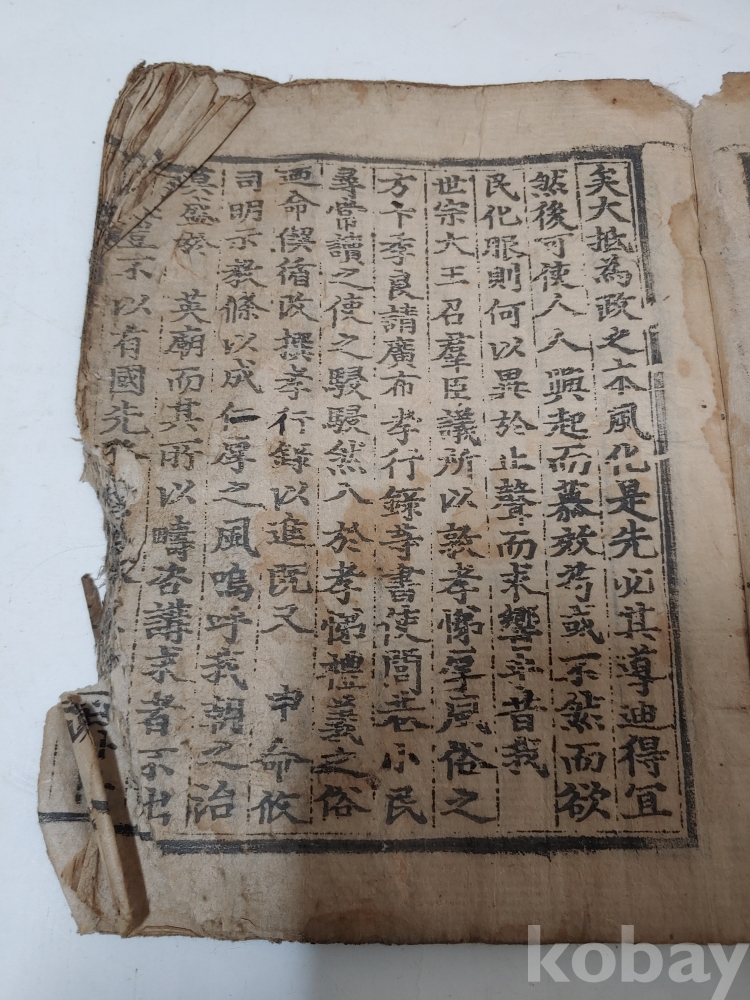 矣大抵為政之本風化是先必其導迪得宜
然後可使人人興起而慕效苟或不然而欲
民化服則何以異於止聲而求響乎昔我
世宗大王召羣臣議所以敦孝悌厚風俗之
方卞季良請廣布孝行錄等書使閭巷小民
尋常讀之使之駸駸然入於孝悌禮義之俗
亟命偰循改撰孝行錄以進旣又 申命攸
司明示敎條以成仁厚之風嗚呼我朝之治
莫盛於 英廟而其所以疇咨講求者不出
不以有國先
kobay